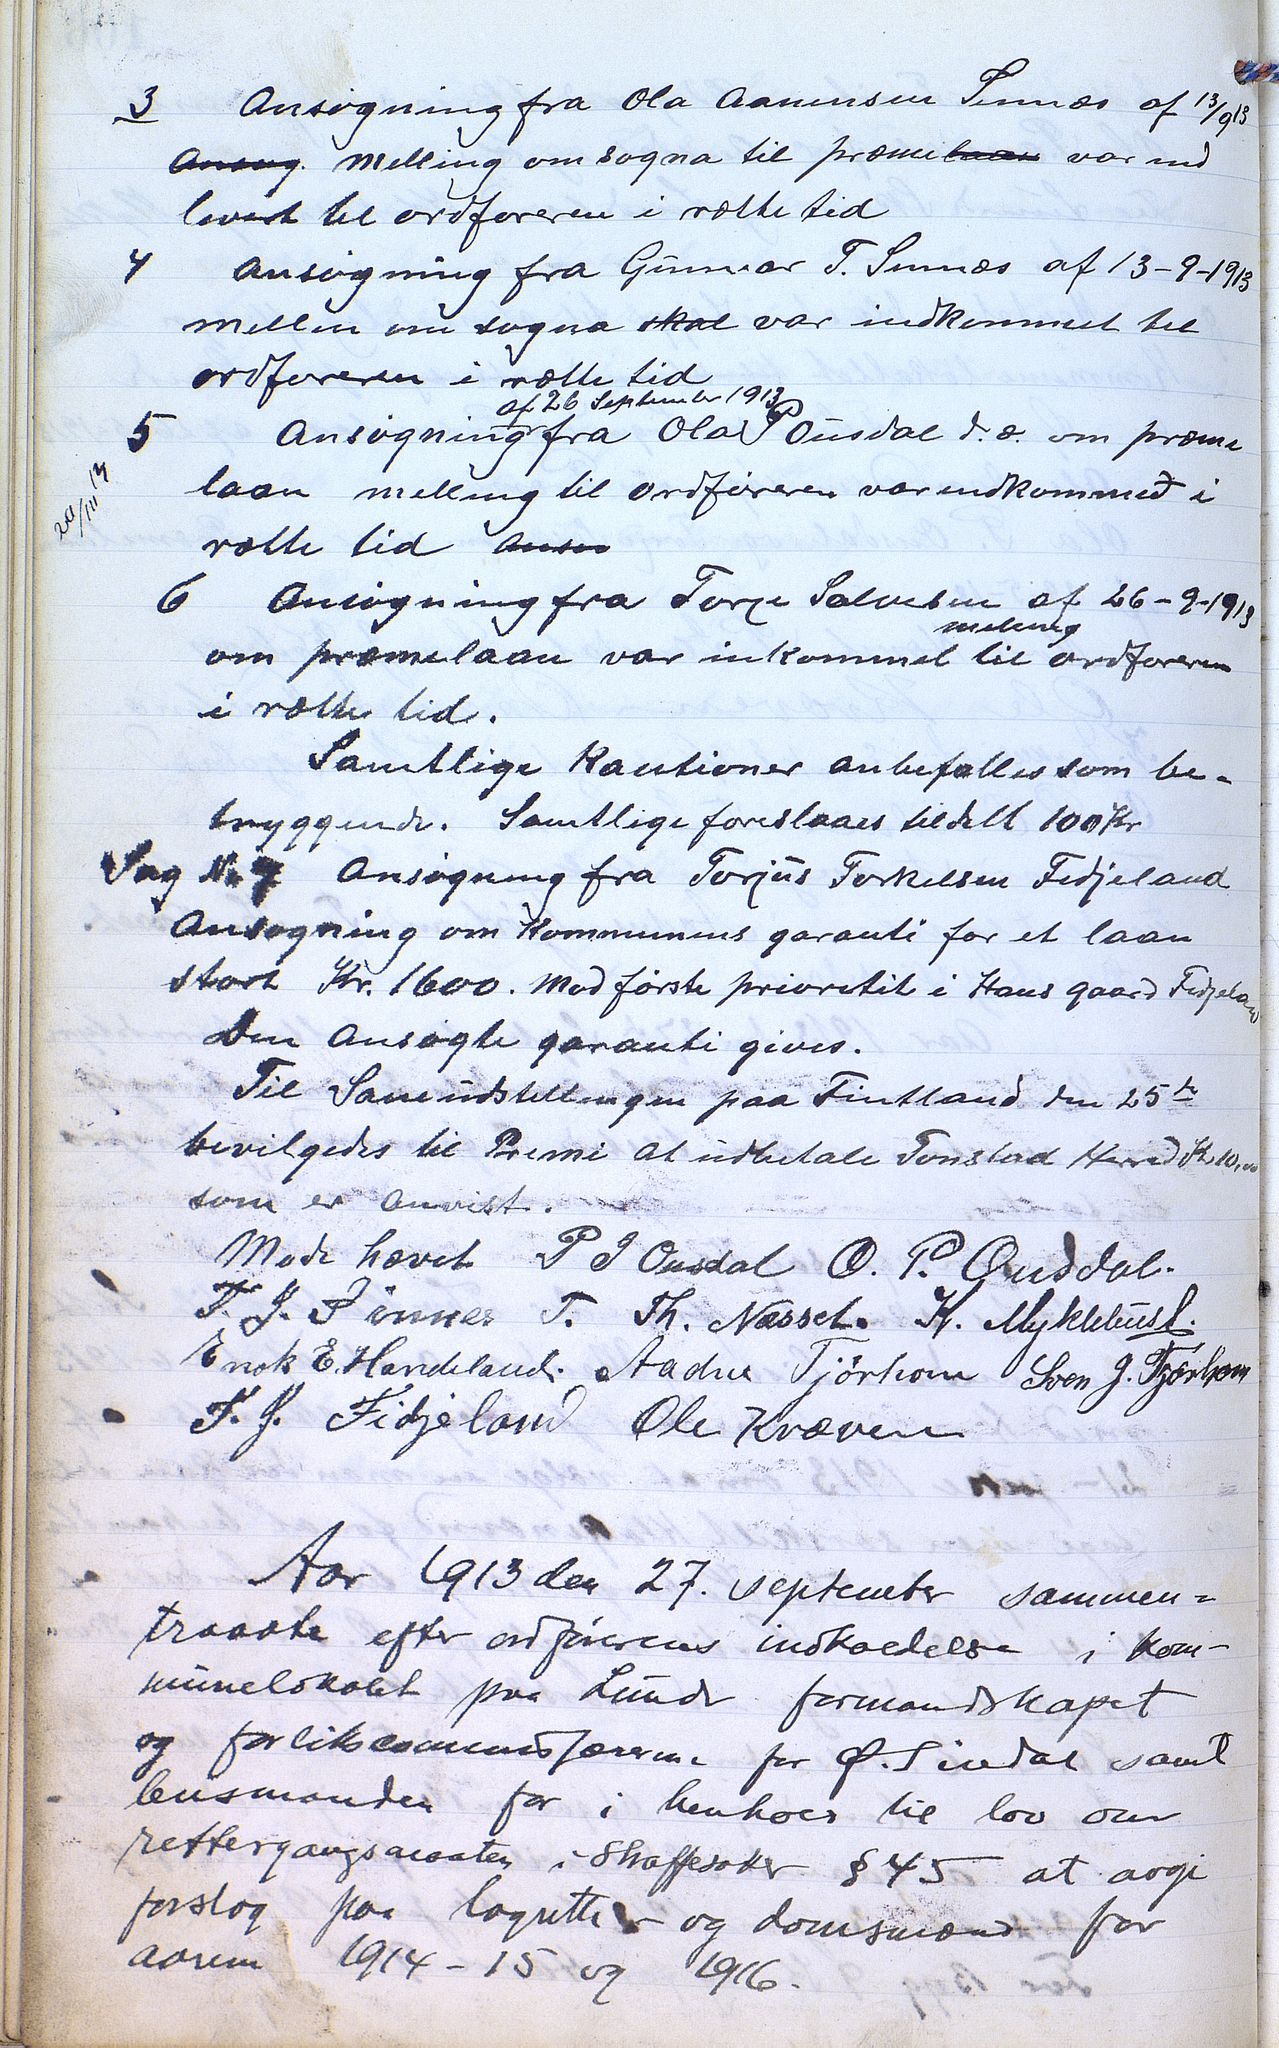 3 Ansøgning fra Ola Aanensen Sinnæs af 13/9 13
Ansøg. Melling om sogna til præmelaan var ind
levert til ordføreren i rætte tid
4 Ansøgning fra Gunnar T. Sinnæs af 13-9-1913
mellin om sogna skal var indkommet til
ordføreren i rætte tid
af 26 September 1913
5 Ansøgning fra Ola P Ousdal d.æ. om præme
laan melling til ordføreren var indkommed i
rætte tid Ansø
6 Ansøgning fra Torje Salvesen af 26-9-1913
melling
om præmelaan var inkommet til ordføreren
i rætte tid.
Samtlige Kautioner anbefalles som be-
tryggende. Samtlige foreslaaes tildelt 100 Kr
Sag No 7 Ansøgning fra Torjus Torkelsen Fidjeland
Ansøgning om Kommunens garanti for et laan
stort Kr. 1600. Mod første prioretit i Hans gaard Fidjeland
Den ansøgte garanti gives.
Til Saueudstellingen paa Tintland den 25de
bevilgedes til Premi at udbetale Tonstad Herred Kr 10,00
som er anvist.
Møde hævet P J Ousdal O. P. Ousdal.
T. J. Sinnes T. Th. Næsset. K. Myklebust.
Enok E. Handeland. Aadne Tjörhom Sven J. Tjørhom
T. J. Fidjeland Ole Kræven
Aar 1913 den 27. september sammen-
traadte efter ordførerens indkaldelse i kom-
munelokalet paa Lunde formandskapet
og forlikscommisjærerne for Ø. Sirdal samt
lensmanden for i henhold til lov om
rettergangsmaaten i Straffesaker § 45 at avgi
forslag paa lagrette og domsmænd for
aarene 1914-15 og 1916.